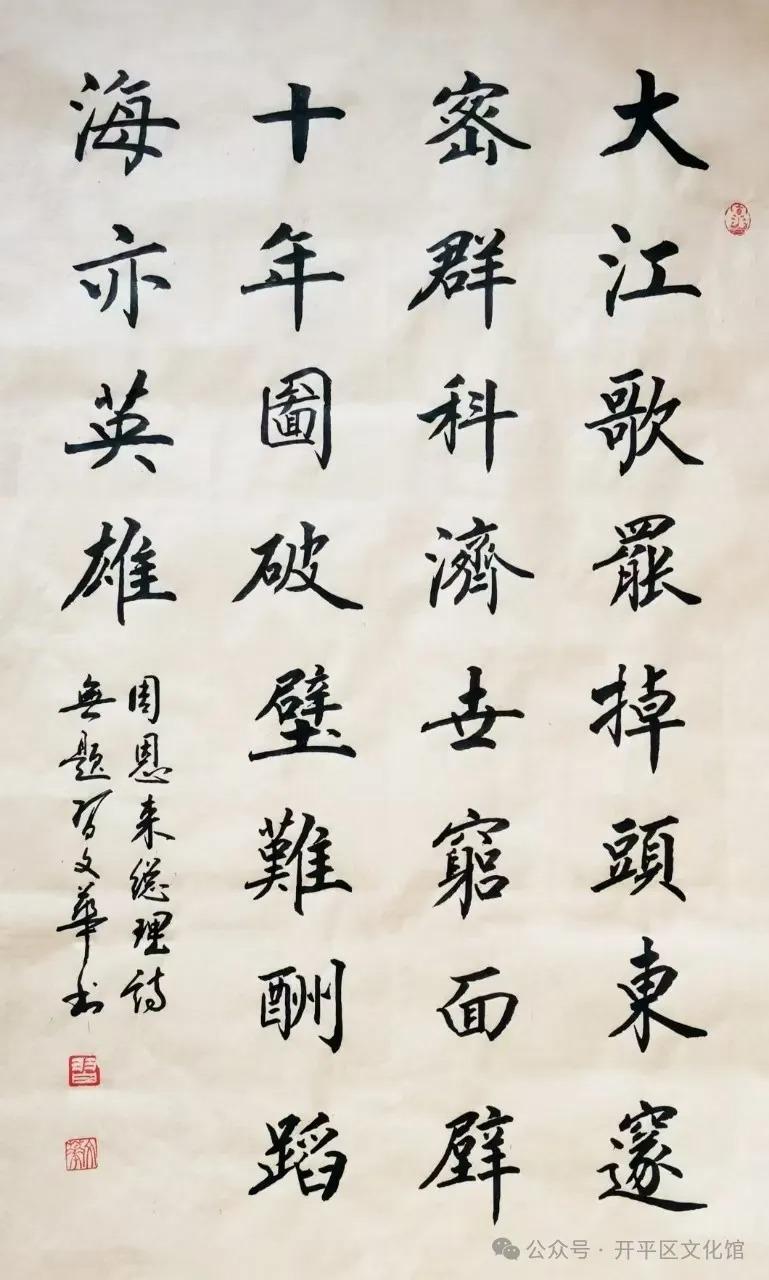 大江歌罷掉頭東邃
密群科濟世窮面壁
十年圖破壁難酬蹈
海亦英雄
周恩来總理詩
無題 文華书
公众号 · 开平区文化馆